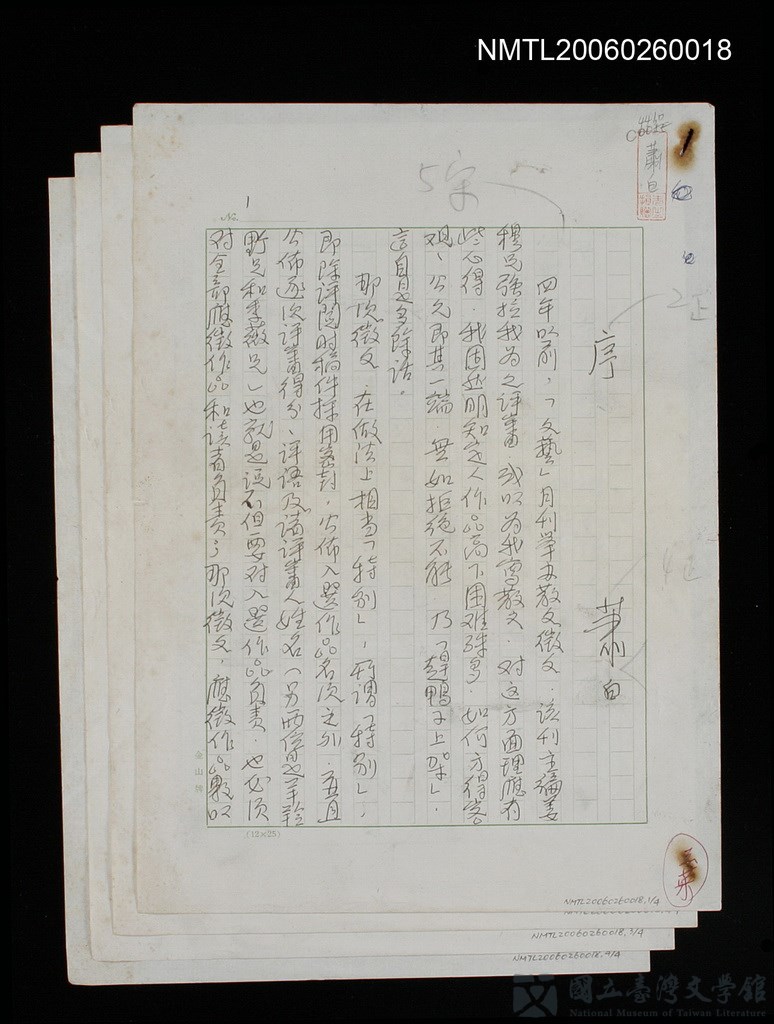 NMTL20060260018
蕭白
1
5宋
2正
4正
No. 1
序
蕭白
四年以前，「文藝」月刊举办散文徵文，该刊主编姜
穆兄強拉我为之評審，或以为我寫散文，对这方面理應有
些心得，我固然明知定人作品高下困难殊多，如何方得客
观、公允即其一端，無如拒绝不能，乃「趕鴨子上架」，
這自是多餘话。
那次徵文，在做法上相当「特别」，所谓「特别」，
即除評閱时稿件採用密封，公佈入選作品名次之外，并且
公佈逐次評審得分、評语及诸評審人姓名（另两位是羊令
野兄和季薇兄）也就是说不但要对入選作品负责，也必须
对全部應徵作品和读者负责；那次徵文，應徵作品数以
(12×25)
NMTL20060260018.1/4
NMTL20060260018.3/4
NMTL20060260018.4/4
國立臺灣文學館
National Museum of Taiwan Literature